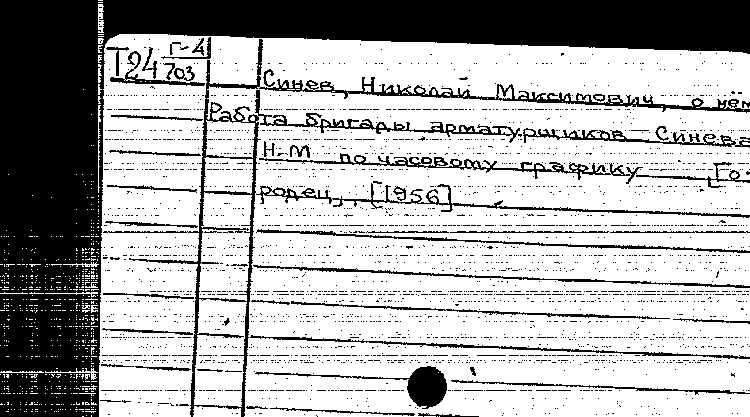 Г-4
Т24 703
Синев, Николай Максимович, о нём
Работа бригады арматурщиков Синева
Н.М по часовому графику [Го-
родец, [1956]